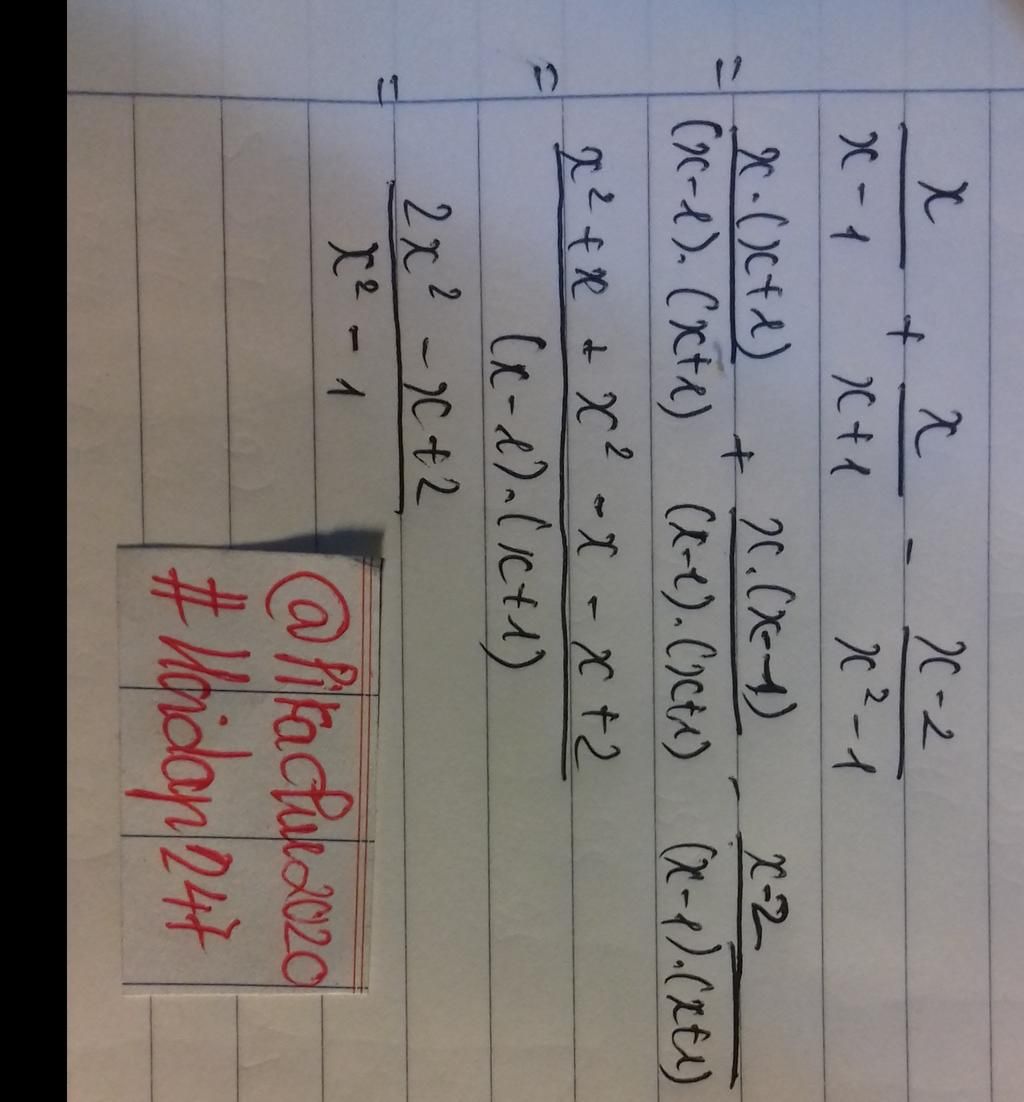 x/(x-1) + x/(x+1) - (x-2)/(x²-1)
= x.(x+1)/(x-1).(x+1) + x.(x-1)/(x-1).(x+1) - x-2/(x-1).(x+1)
= x²+x + x² - x - x + 2/(x-1).(x+1)
= 2x² - x + 2/x² - 1
@Pikachue2020
#Hoidap247